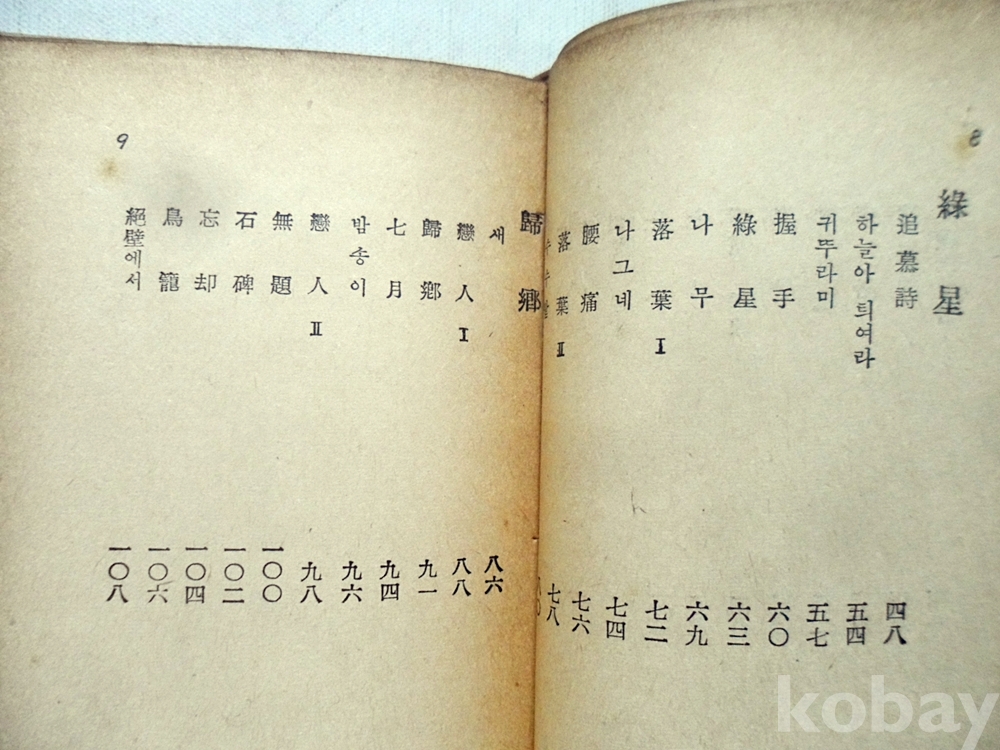 8
綠星
追慕詩 四八
하늘아 틔여라 五四
귀뚜라미 五七
握手 六〇
綠星 六三
나무 六九
落葉 I 七二
나그네 七四
腰痛 七六
落葉 II 七八
9
歸鄕
새 八六
戀人 I 八八
歸鄕 九一
七月 九四
밤송이 九六
戀人 II 九八
無題 一〇〇
石碑 一〇二
忘却 一〇四
鳥籠 一〇六
絕壁에서 一〇八
kobay